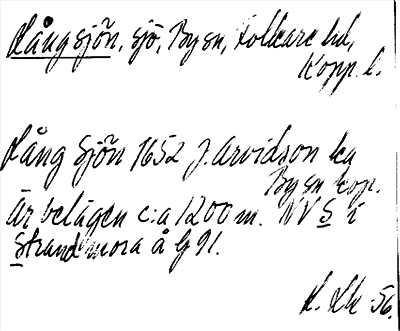 Långsjön, sjö, By sn, Folkare hd,
Kopp. l.
Lång Siön 1652 J. Arvidson ka
By sn Kop.
Är belägen c:a 1200 m. NV S i
Strandmora å G 91.
56.